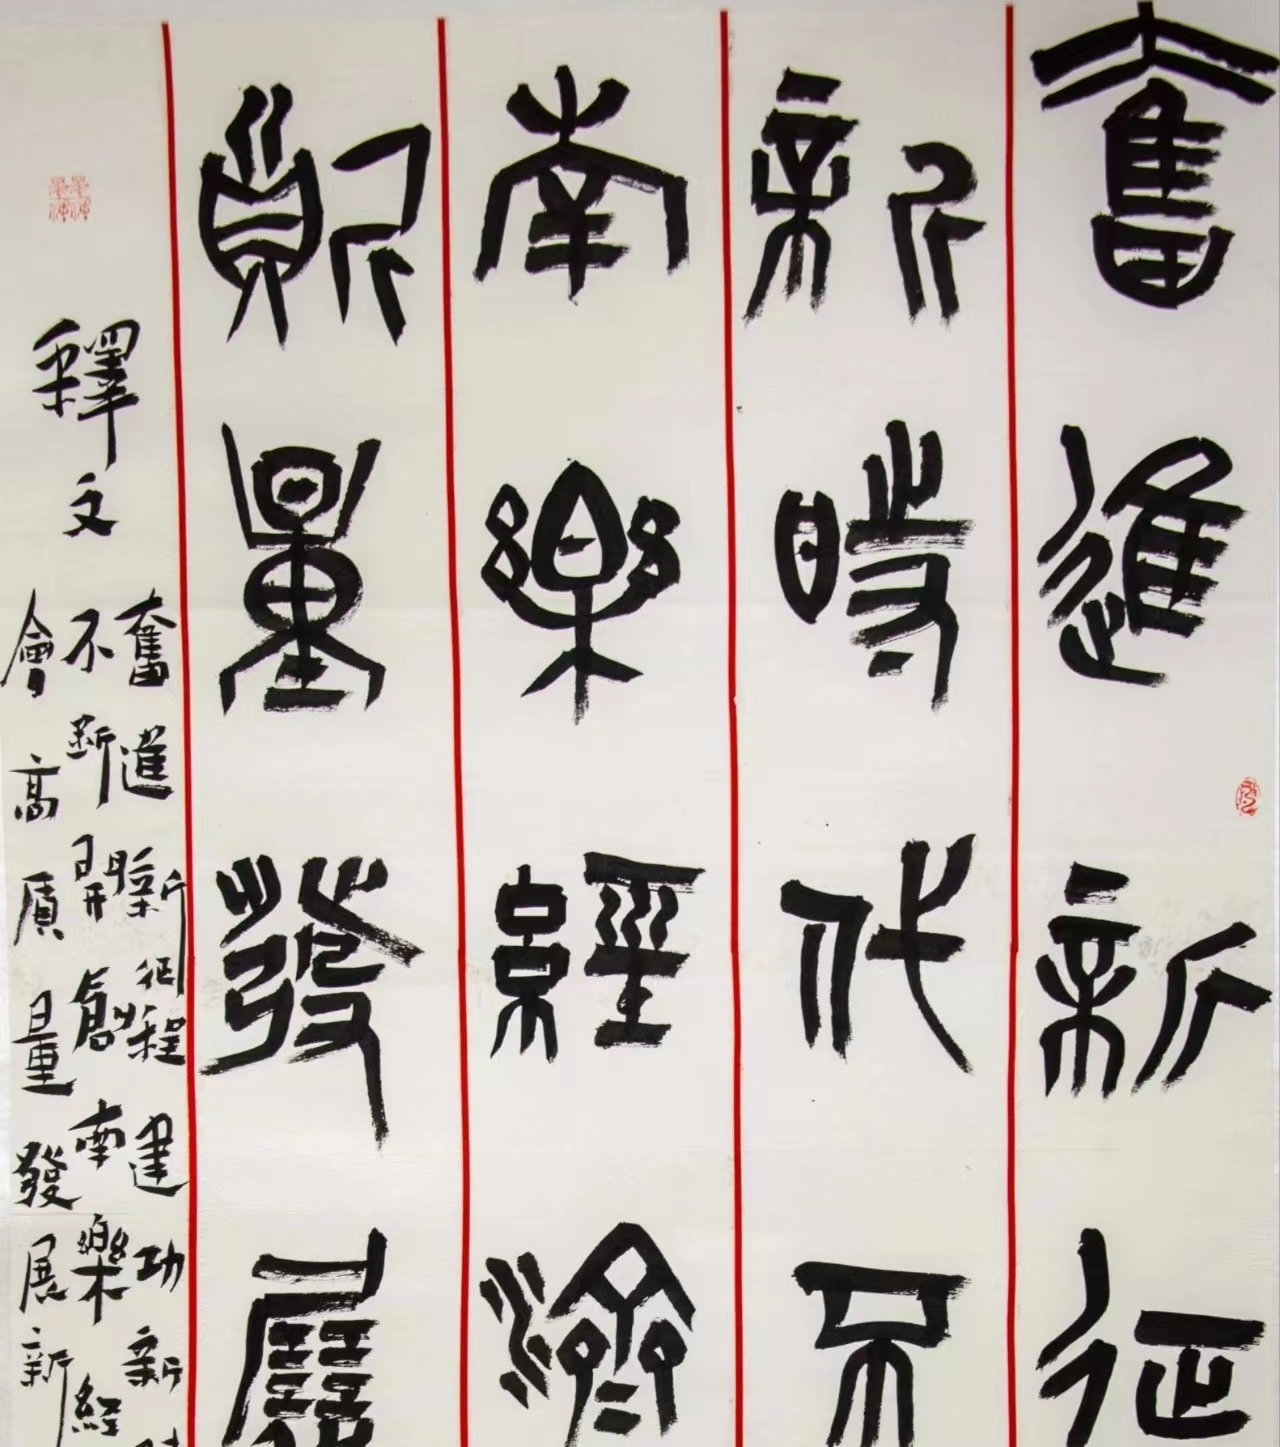 奮進新征
新時代不
南樂經濟
質量發展
釋文
奮進新征程建功新時
不斷開創南樂經
會高質量發展新